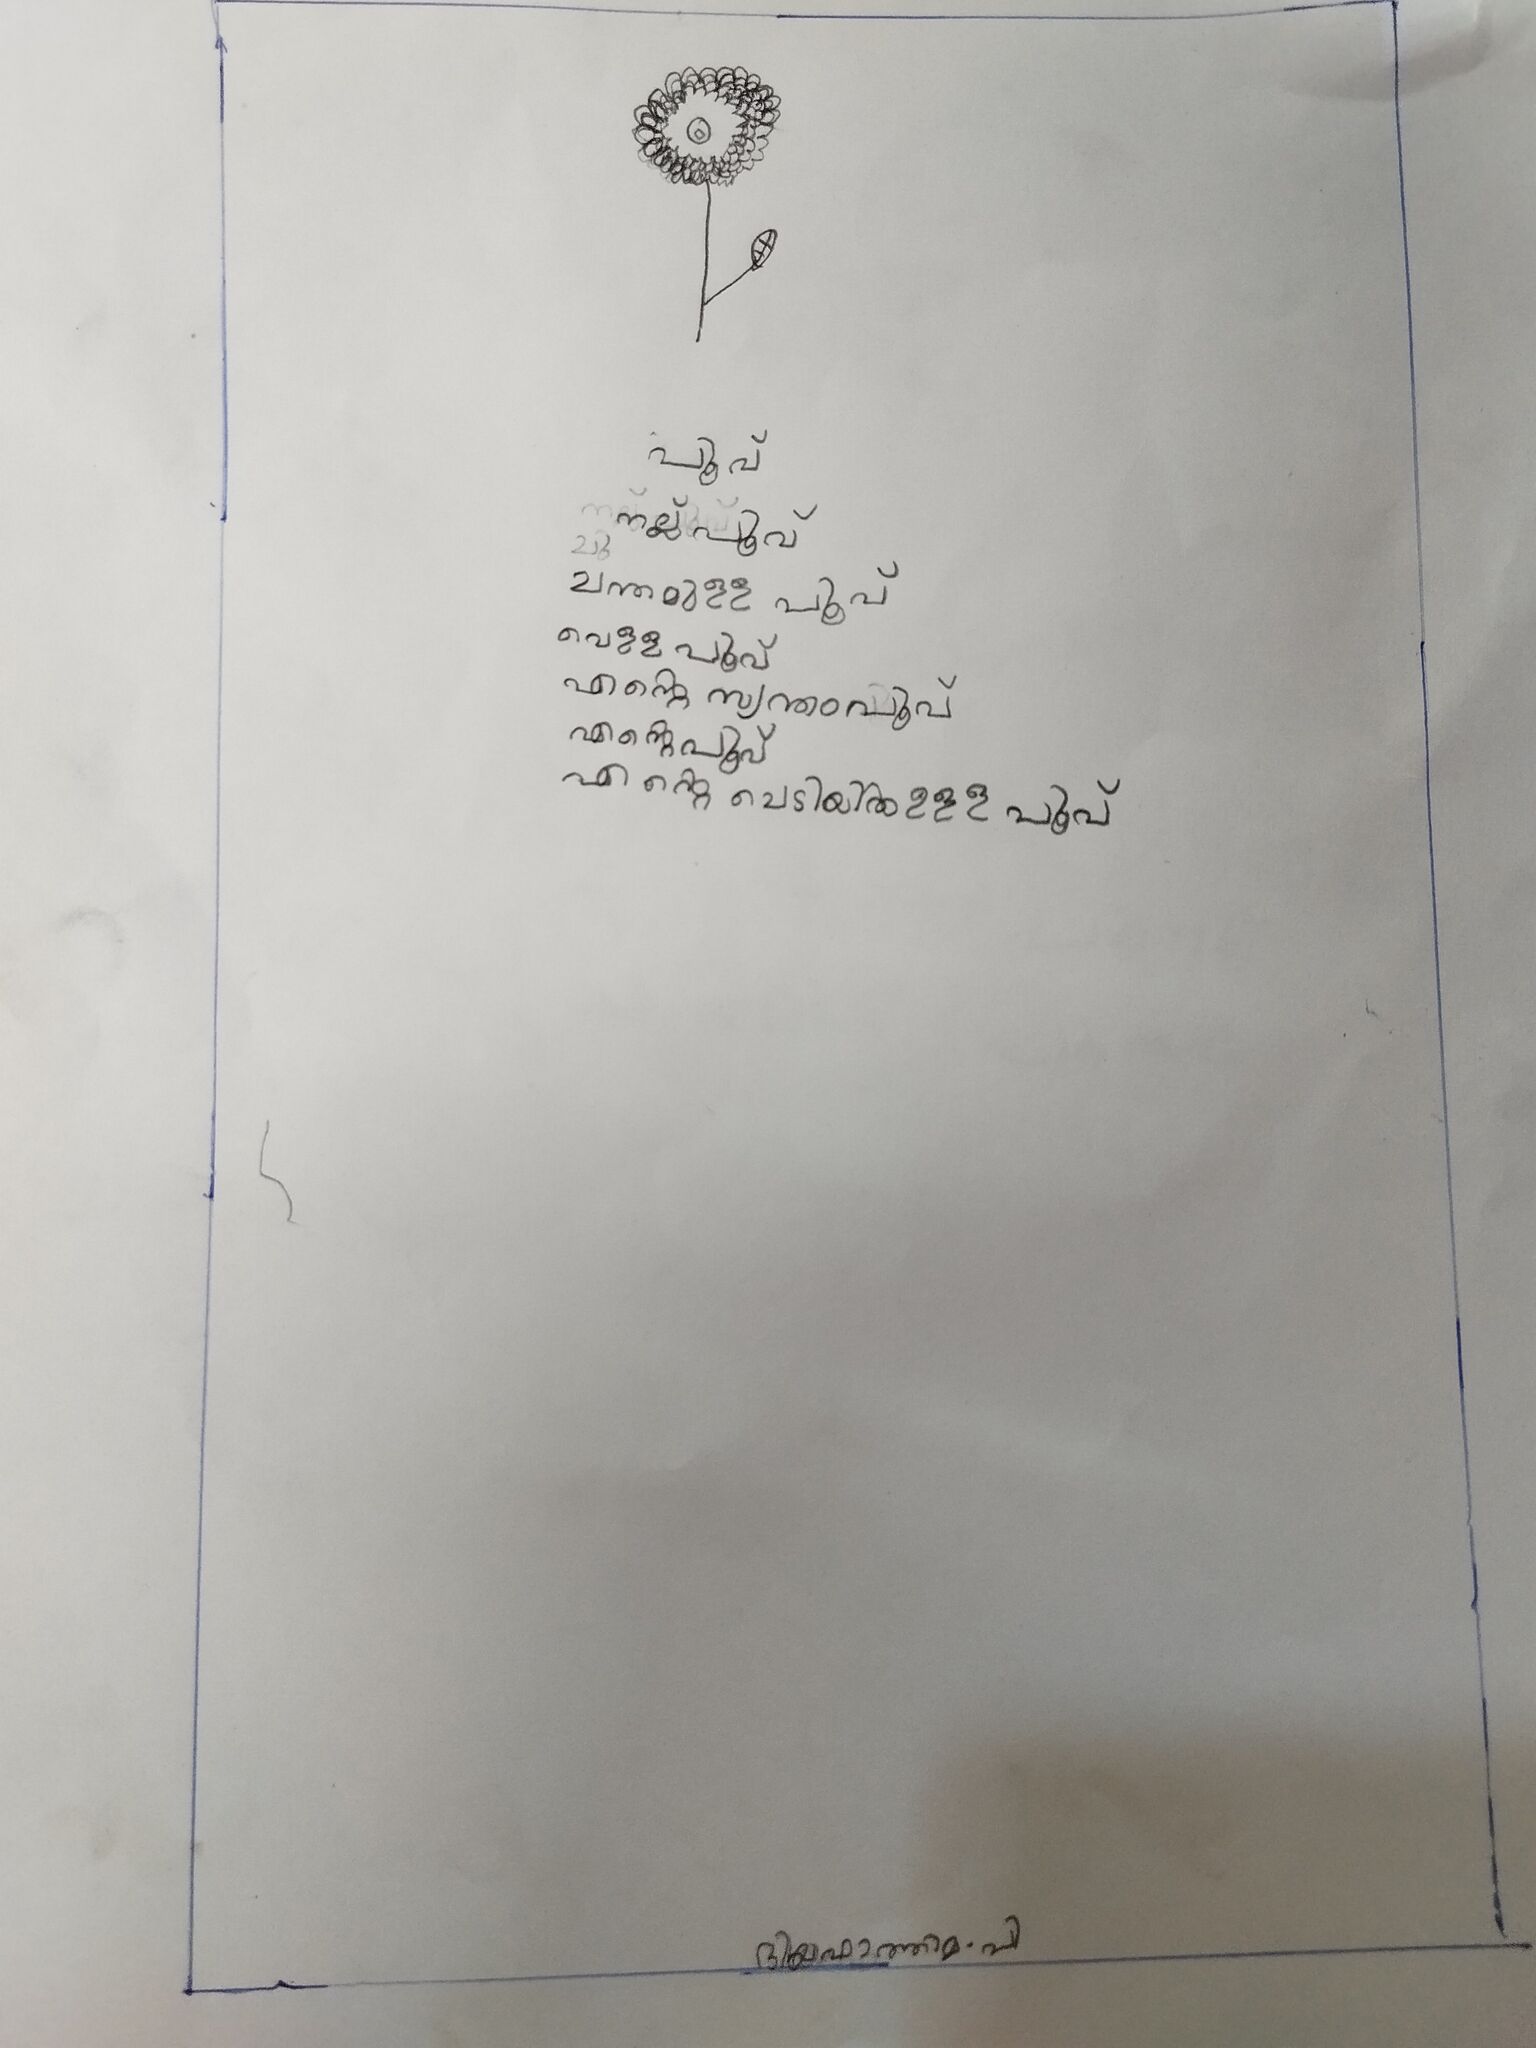 പൂവ്
നല്ല പൂവ്
ചന്തമുള്ള പൂവ്
വെള്ള പൂവ്
എന്റെ സ്വന്തം പൂവ്
എന്റെ പൂവ്
എന്റെ ചെടിയിൽ ഉള്ള പൂവ്
ദിയഫാത്തിമ. പി